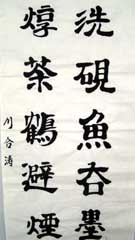 洗硯魚吞墨
烹茶鶴避煙
川合涛